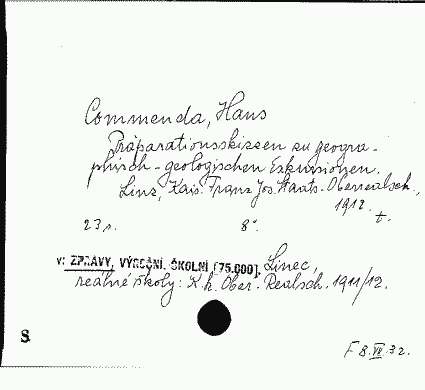 Commenda, Hans
Präparationsskizzen zu geogra-
phisch-geologischen Exkursionen.
Linz, Kais. Franz Jos. Staats-Oberrealsch.,
1912. t.
23 s. 8°.
v: ZPRÁVY, VÝROČNÍ. ŠKOLNÍ [75.000]. Linec,
reálné školy: K.k. Ober-Realsch. 1911/12.
S.
F 8.VII.32.